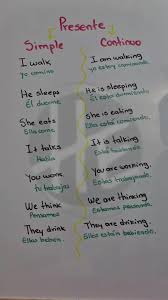 Presente
Simple Continuo
I walk
yo camino
I am walking
yo estoy caminando
He sleeps
Él duerme
He is sleeping
Él está durmiendo
She eats
Ella come
She is eating
Ella está comiendo.
It talks
Habla
It is talking
Está hablando
You work
tu trabajas
You are working.
Estás trabajando.
We think
Pensamos
We are thinking
Estamos pensando
They drink
Ellas beben.
They are drinking.
Ellas están bebiendo.